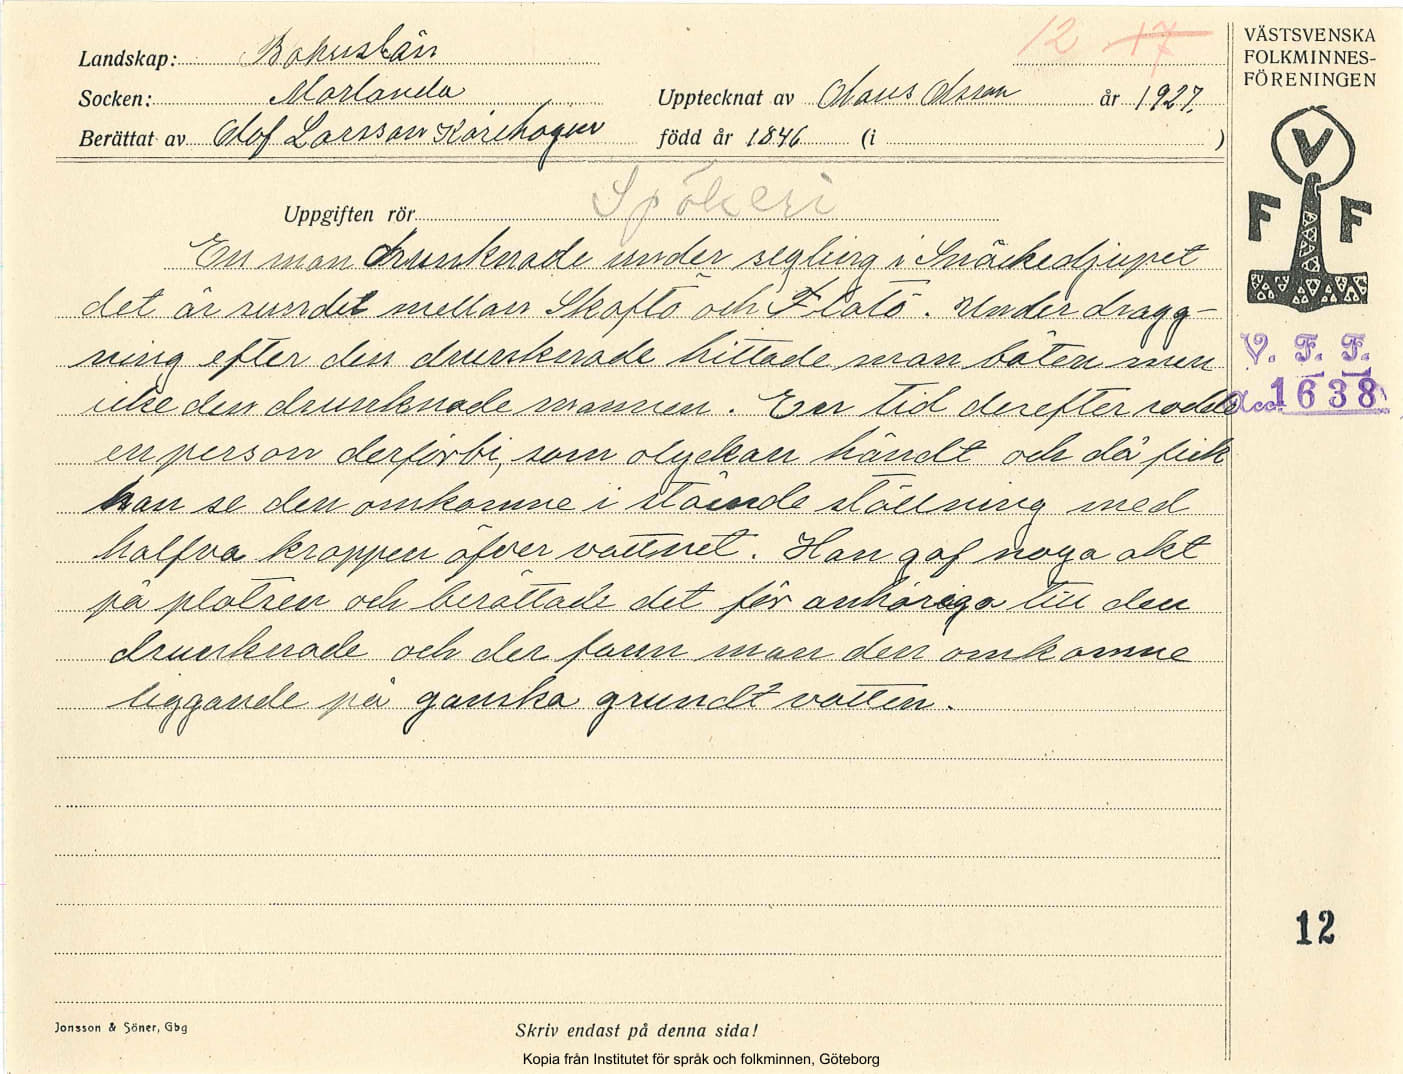 12 17
Landskap: Bohuslän
Socken: Morlanda
Upptecknat av Olaus Olsson år 1927.
Berättat av Olof Larsson Kårehogen född år 1846 (i )
Uppgiften rör Spökeri
En man drunknade under segling i Snäckedjupet
det är sundet mellan Skaftö och Flatö. Under dragg-
ning efter den drunknade hittade man båten men
icke den drunknade mannen. En tid derefter rodde
en person derförbi, som olyckan händt och då fick
han se den omkomne i stående ställning med
halfva kroppen öfver vattnet. Han gaf noga akt
på platsen och berättade det för anhöriga till den
drunknade och der fann man den omkomne
liggande på ganska grundt vatten.
Jonsson & Söner, Gbg
Skriv endast på denna sida!
Kopia från Institutet för språk och folkminnen, Göteborg
VÄSTSVENSKA
FOLKMINNES-
FÖRENINGEN
V
F F
V. F. F.
Acc. 1638
12